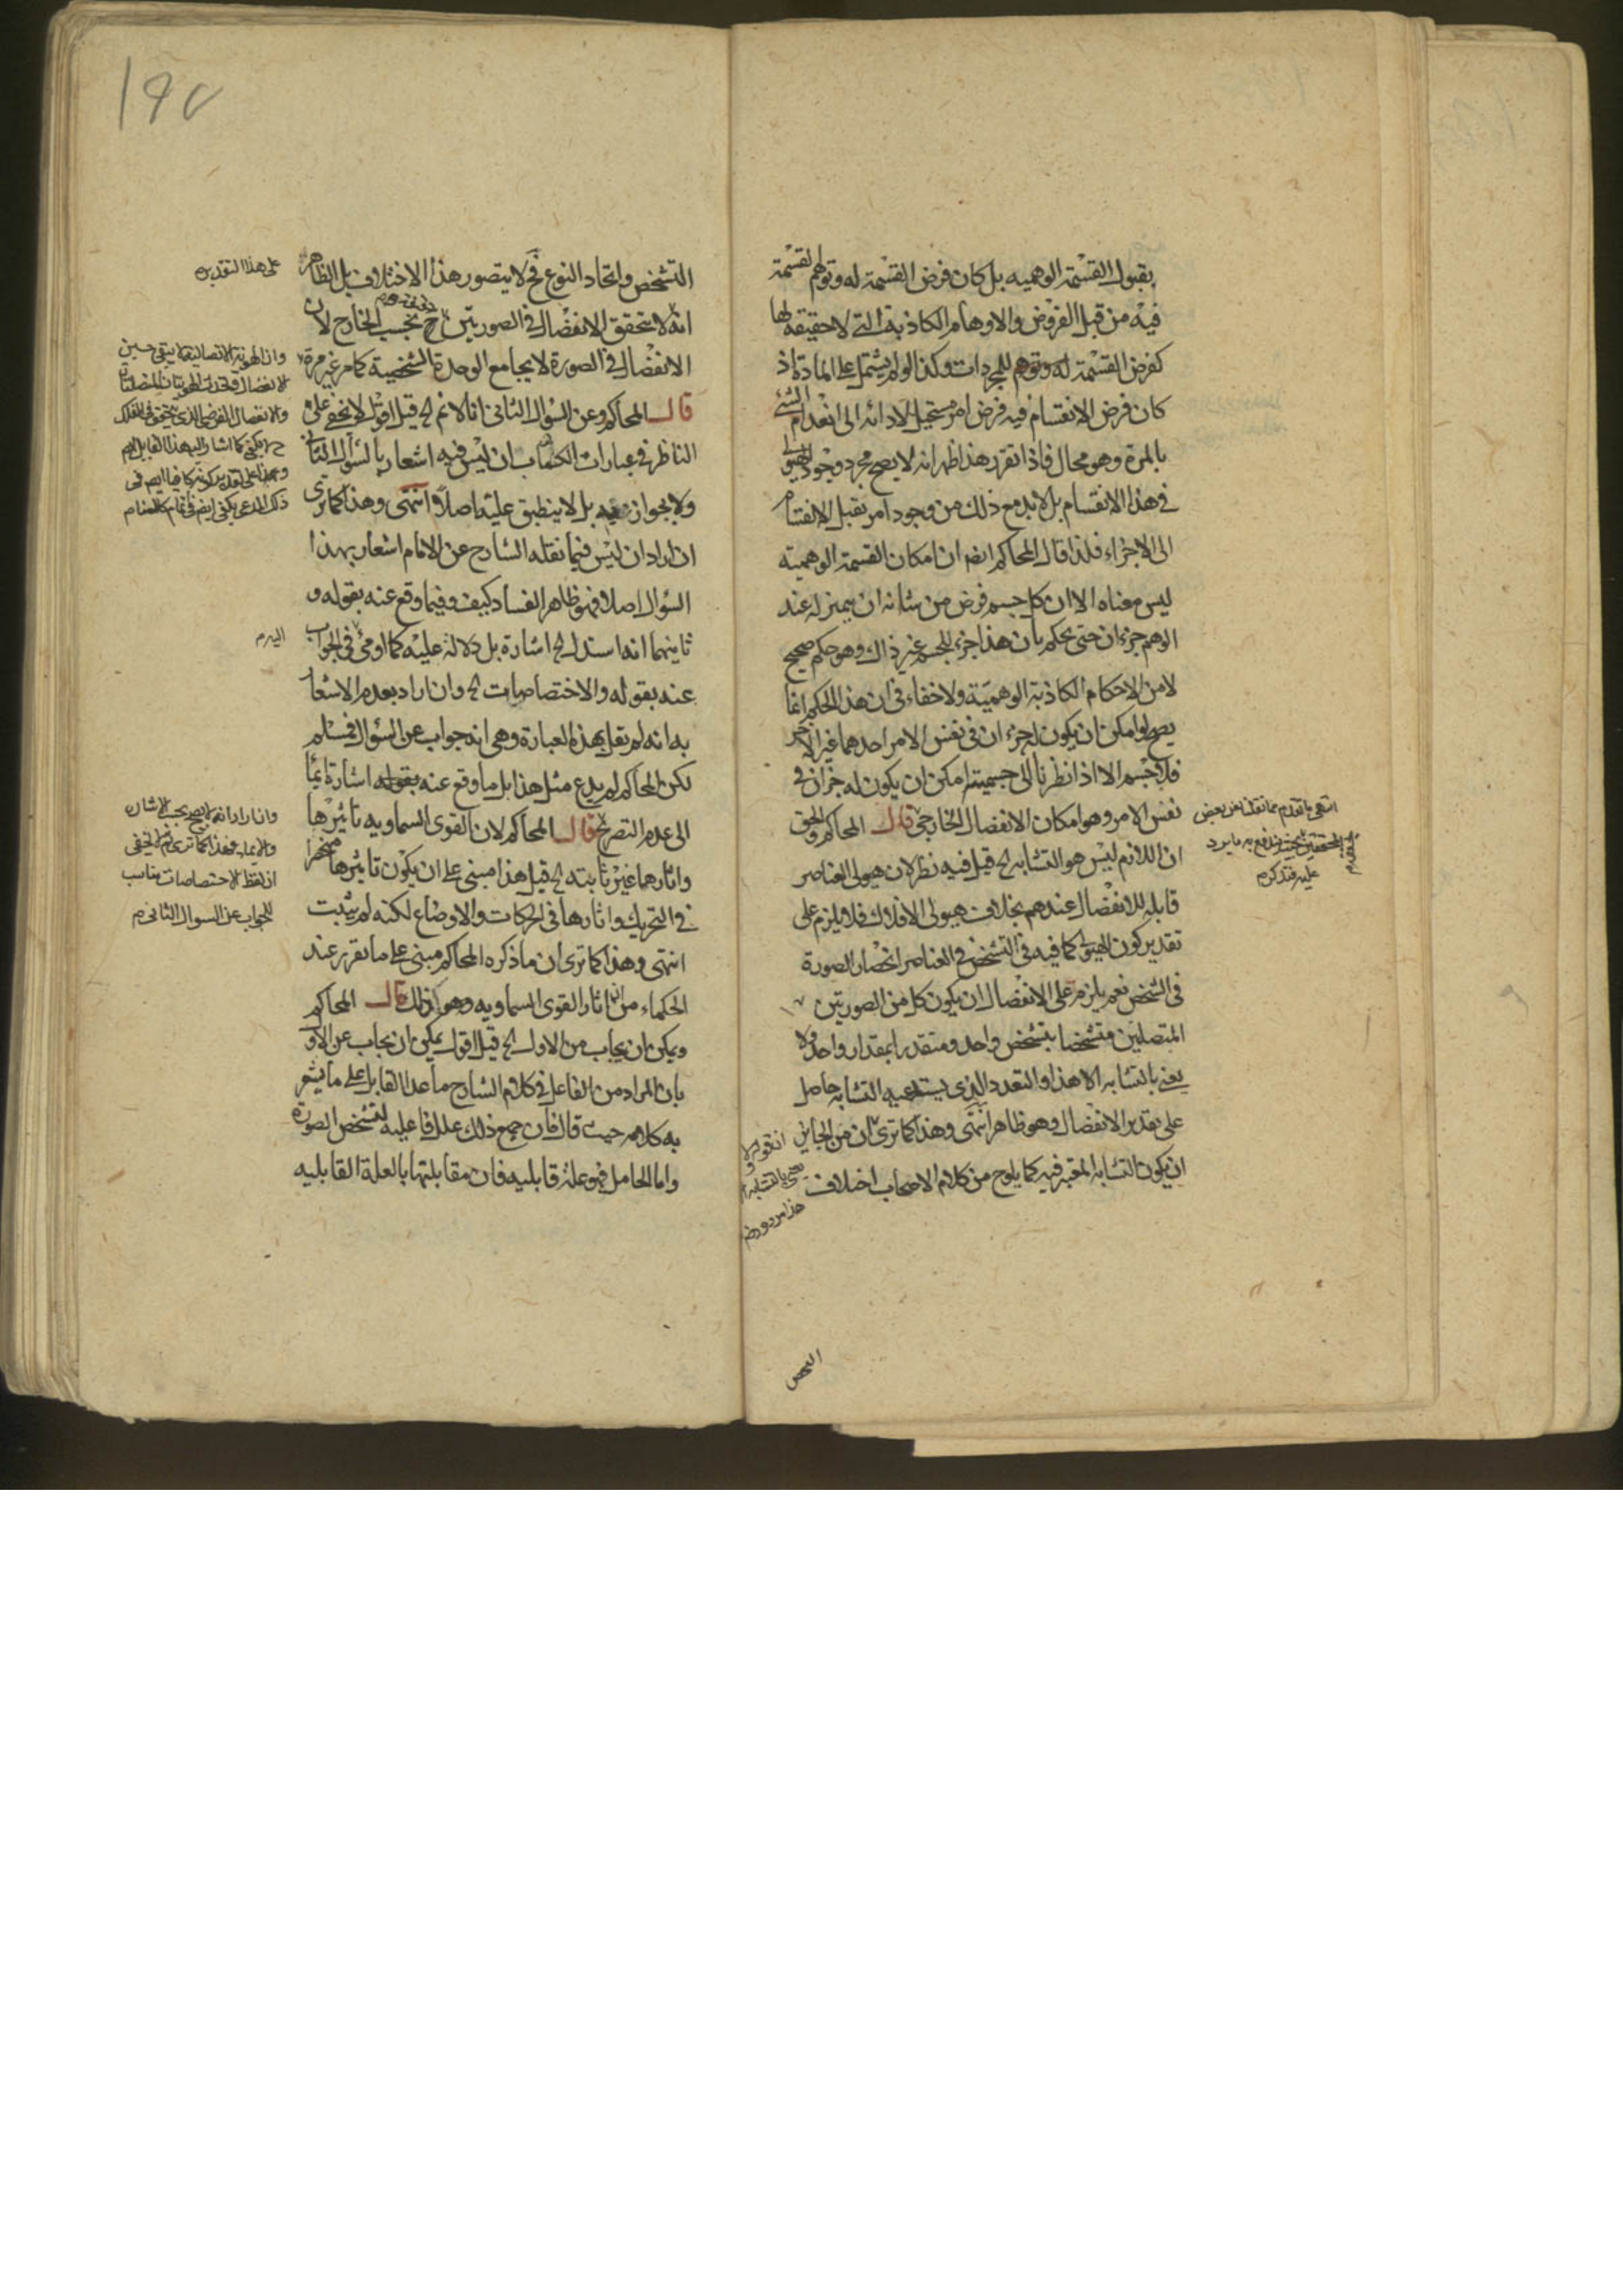 بقبول القسمة الوهميه بل كان فرض القسمة له وتوهم القسمة
فيه من قبل الفروض والاوهام الكاذبة التى لا حقيقة لها
كفرض القسمة له وتوهم للمجردات وكذا لو لم يشتمل على المادة اذ
كان فرض الانقسام فيه فرض امر مستحيل لادائه الى انعدام الشئ
بالمرة وهو محال فاذا تقرر هذا ظهر انه لا يصح مجرد وجود الهيولى
فى هذا الانقسام بل لا بد مع ذلك من وجود امر يقبل الانقسام
الى الاجزاء فلذا قال المحاكم ايضا ان امكان القسمة الوهمية
ليس معناه الا ان كل جسم فرض من شانه ان يميز له عند
الوهم جزءان حتى يحكم بان هذا جزء للجسم غير ذاك وهو حكم صحيح
لا من الاحكام الكاذبة الوهمية ولا خفاء فى ان هذا الحكم انما
يصح لو امكن ان يكون له جزءان فى نفس الامر احدهما غير الاخر
فكل جسم الا اذا نظرنا الى جسميته امكن ان يكون له جزان فى
نفس الامر وهو امكان الانفصال الخارجى قال المحاكم والحق
ان اللازم ليس هو التشابه الخ قيل فيه نظر لان هيولى العناصر
قابله للانفصال عندهم بخلاف هيولى الافلاك فلا يلزم على
تقدير كون الهيولى كافيه فى التشخص فى العناصر انحصار الصورة
فى الشخص نعم يلزم على الانفصال ان يكون كل من الصورتين
المتصلتين متشخصا بتشخص واحد ومتقدرا بمقدار واحد ولا
يعنى بالتشابه الا هذا والتعدد الذى يستدعيه التشابه حاصل
على تقدير الانفصال وهو ظاهر انتهى وهذا كما ترى ان من الجايز
ان يكون التشابه المعتبر فيه كما يلوح من كلام الاصحاب اختلاف
انتهى ما تقدم مما نقلنا عن بعض
المحققين بحيث يندفع به ما يرد
عليه فتذكر م
التشخص
١٩٧
التشخص واتحاد النوع فح لا يتصور هذا الاختلاف بل الظاهر
انه لا يتحقق الانفصال فى الصورتين ح بحسب الخارج لان
الانفصال فى الصورة لا يجامع الوحدة الشخصية كما مر غير مرة
قال المحاكم وعن السؤال الثانى انا لا نم الخ قيل اقول لا يخفى على
الناظر فى عبارات الكتاب ان ليس فيه اشعار بالسؤال الثانى
ولا بجوابه بل لا ينطبق عليه اصلا انتهى وهذا كما ترى
ان اراد ان ليس فيما نقله الشارح عن الامام اشعار بهذا
السؤال اصلا فهو ظاهر الفساد كيف وفيما وقع عنه بقوله و
ثانيهما انه استدل الخ اشارة بل دلالة عليه كما اومئ فى الجواب
عنه بقوله والاختصاصات الخ وان اراد بعدم الاشعار
به انه لم تقل بهذه العبارة وهى انه جواب عن السؤال فمسلم
لكن المحاكم لم يدع مثل هذا بل ما وقع عنه بقوله اشارة ايما
الى عدم التصريح قال المحاكم لان القوى السماويه تاثيرها
واثارها غير ثابته الخ قيل هذا مبنى على ان يكون تاثيرها منحصرا
فى التحريك واثارها فى الحركات والاوضاع لكنه لم يثبت
انتهى وهذا كما ترى ان ما ذكره المحاكم مبنى على ما تقرر عند
الحكماء من ان اثار القوى السماويه وهو كذلك قال المحاكم
ويمكن ان يجاب من الاول الخ قيل اقول يمكن ان يجاب عن الاول
بان المراد من الفاعل فى كلام الشارح ما عدا القابل على ما يشعر
به كلامه حيث قال فان جميع ذلك علل فاعليه لتشخص الصورة
واما الحامل فهو علة قابليه فان مقابلتها بالعلة القابليه
على هذا التقدير م
وان الهوية الاتصالية لا يبقى حين
اليه م
وان اراد انه لا يصح بحسب الاشارة
والايماء فهذا كما ترى
ان لفظ الاختصاصات يناسب
للجواب عن السوال الثانى م